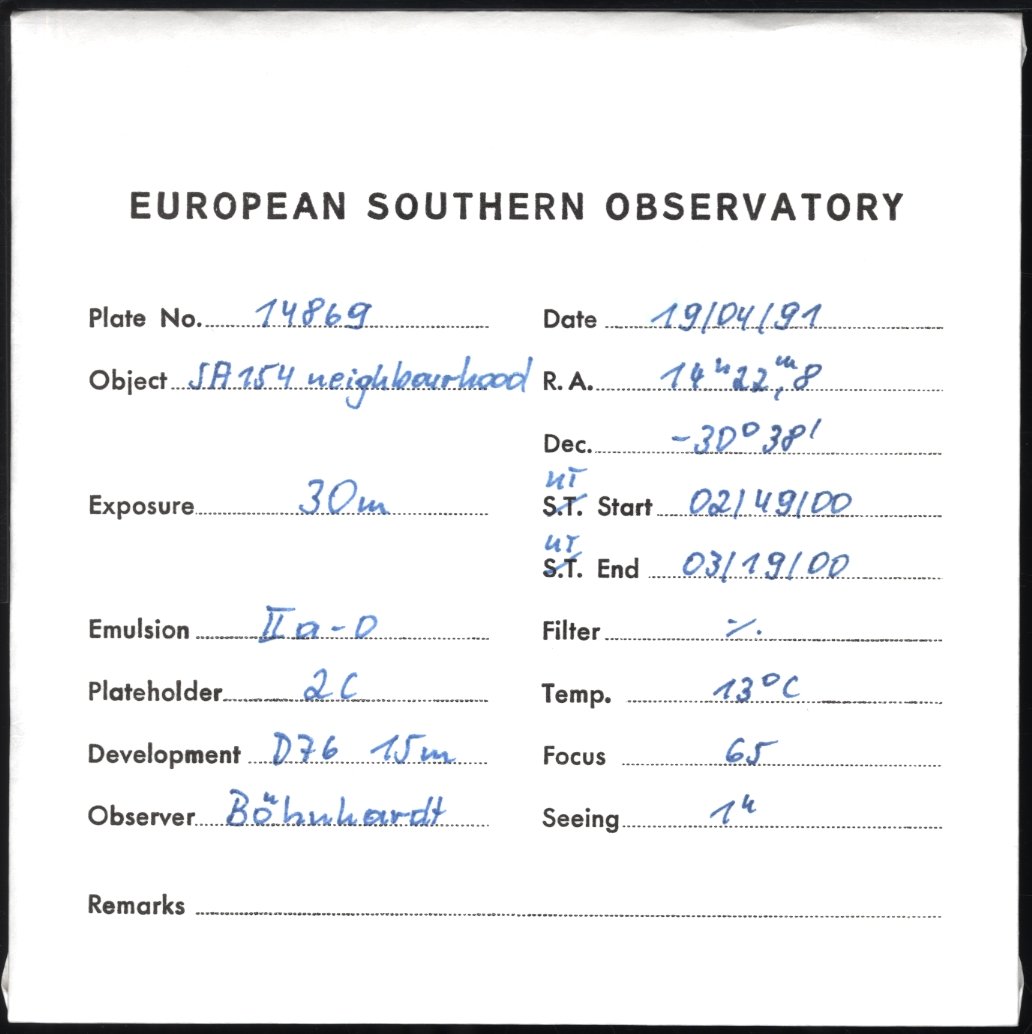 EUROPEAN SOUTHERN OBSERVATORY
Plate No. 14869 Date 19/04/91
Object SA154 neighbourhood R.A. 14ʰ22ᵐ,8
Dec. -30°38'
UT
Exposure 30m S.T. Start 02/49/00
UT
S.T. End 03/19/00
Emulsion IIa-D Filter ./.
Plateholder 2C Temp. 13°C
Development D76 15m Focus 65
Observer Böhnhardt Seeing 1"
Remarks